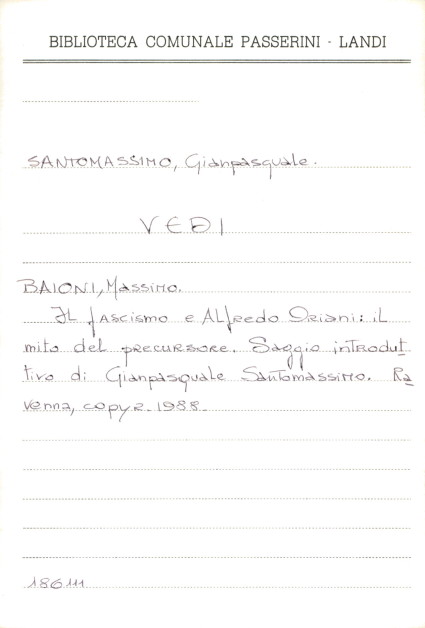 BIBLIOTECA COMUNALE PASSERINI - LANDI
SANTOMASSIMO, Gianpasquale.
VEDI
BAIONI, Massimo.
Il fascismo e Alfredo Oriani: il
mito del precursore. Saggio introdut
tivo di Gianpasquale Santomassimo. Ra
venna, copyr. 1988.
186111